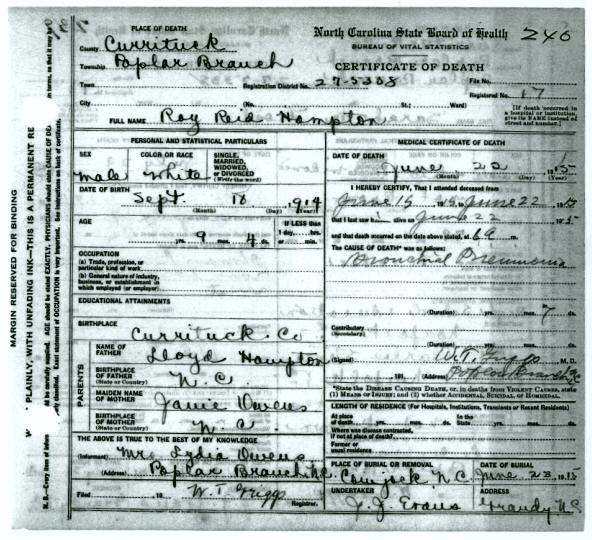 PLACE OF DEATH
County Currituck
Township Poplar Branch
Town
City
North Carolina State Board of Health 240
BUREAU OF VITAL STATISTICS
CERTIFICATE OF DEATH
Registration District No. 27-5308
File No.
Registered No. 17
(No. St.; Ward)
[If death occurred in a hospital or institution, give its NAME instead of street and number.]
FULL NAME Roy Reid Hampton
PERSONAL AND STATISTICAL PARTICULARS
SEX male
COLOR OR RACE White
SINGLE, MARRIED, WIDOWED, or DIVORCED (Write the word)
DATE OF BIRTH Sept 18 1914
(Month) (Day) (Year)
AGE
yrs. 9 mos. 4 ds.
IF LESS than 1 day, hrs. or min.
OCCUPATION
(a) Trade, profession, or particular kind of work
(b) General nature of industry, business, or establishment in which employed (or employer)
EDUCATIONAL ATTAINMENTS
BIRTHPLACE Currituck Co
PARENTS
NAME OF FATHER Lloyd Hampton
BIRTHPLACE OF FATHER (State or Country) N.C.
MAIDEN NAME OF MOTHER Janie Owens
BIRTHPLACE OF MOTHER (State or Country) N.C.
THE ABOVE IS TRUE TO THE BEST OF MY KNOWLEDGE
(Informant) Mrs Lydia Owens
(Address) Poplar Branch N.C.
Filed , 19 W.T. Griggs
Registrar.
MEDICAL CERTIFICATE OF DEATH
DATE OF DEATH June 22 1915
(Month) (Day) (Year)
I HEREBY CERTIFY, That I attended deceased from
June 15 1915, June 22 1915
that I last saw h alive on June 22 1915
and that death occurred on the date above stated, at 6 a m.
The CAUSE OF DEATH* was as follows:
Bronchial Pneumonia
(Duration) yrs. mos. 7 ds.
Contributory
(Secondary)
(Duration) yrs. mos. ds.
(Signed) W.T. Griggs M. D.
191 (Address) Poplar Branch N.C.
*State the DISEASE CAUSING DEATH, or, in deaths from VIOLENT CAUSES, state (1) MEANS OF INJURY; and (2) whether ACCIDENTAL, SUICIDAL, or HOMICIDAL.
LENGTH OF RESIDENCE (For Hospitals, Institutions, Transients or Recent Residents)
At place of death yrs. mos. ds.
In the State yrs. mos. ds.
Where was disease contracted, if not at place of death?
Former or usual residence
PLACE OF BURIAL OR REMOVAL
N.C.
DATE OF BURIAL
June 23 1915
UNDERTAKER
J. J. Evans
ADDRESS
Grandy N.C.
MARGIN RESERVED FOR BINDING
PLAINLY, WITH UNFADING INK—THIS IS A PERMANENT RE
N. B.—Every item of infor
be carefully supplied. AGE should be stated EXACTLY. PHYSICIANS should state CAUSE OF DE
classified. Exact statement of OCCUPATION is very important. See instructions on back of certificate.
in terms, so that it may be